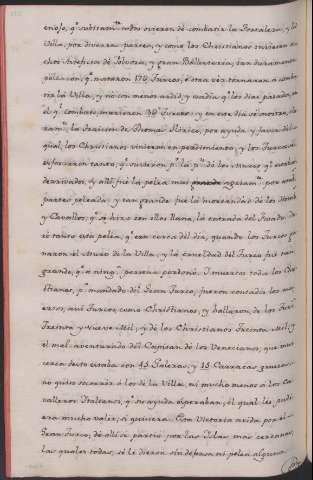 enojo, qᵉ subitamᵗᵉ todos viniesen à combatir la Fortaleza, y la
Villa, por diversas partes, y como los Christianos tuviesen mu-
cha Artifecia de Polvora, y gran Ballesteria, tan duramente
pelearon, qᵉ mataron 17U Turcos, è otra vez tornaron à comba-
tir la Villa, y no con menos ardid, y audia qᵉ los dias pasados, en
el qᵉ combate, murieron Turcos y en este dia se
la traicion de Thomas por ayuda y favor del
qual, los Christianos vinieron en perdimiento, y los Turcos se
esforzaron tanto, qᵉ subieron pʳ la pᵗᵉ de los Muros qᵉ estaban
derrivados, y alli fué la pelea mas por amas
partes peleada, y tan grande fue la mortandad de los Hombᵉˢ
y Cavallos, qᵉ se hizo con ellos llana, la entrada del Fosado; du-
rò tanto esta pelea, qᵉ era cerca del dia, quando los Turcos ga-
naron el Muro de la Villa, y la crueldad del Turco fué tan
grande, qᵉ à ningᵃ persona perdonò. I muertos todos los Chris-
tianos, pʳ mandado del Gran Turco, fueron contados los mu-
ertos, asi Turcos, como Christianos, y hallaron de los Turcos
Treinta y Nueve Mil, y de los Christianos Treinta Mil; y
el mal aventurado del Capitan de los Venecianos, que muy
cerca de esto estaba con 45 Galeras, y 15 Carracas gruesas
no quiso socorrér à los de la Villa, ni mucho menos à los Ca-
valleros Italianos, qᵉ su ayuda esperaban, èl qual les pudi-
era mucho valer, si quisiera. Con Victoria avida por el
Gran Turco, de alli se partiò por las Islas mas cercanas,
las quales todas, se le dieron sin defensa ni pelea alguna.